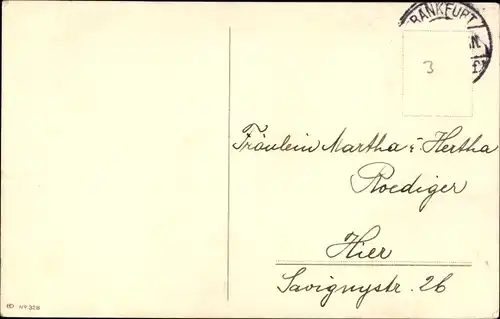 FRANKFURT
3
Fräulein Martha & Hertha
Roediger
Hier
Savignystr. 26
No. 308